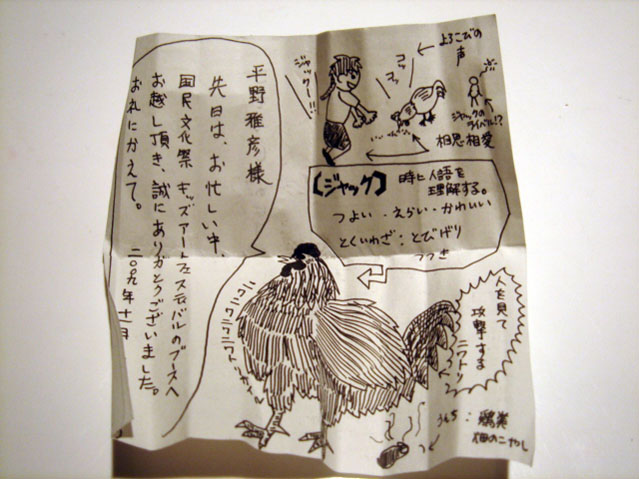 平野雅彦様
先日は、お忙しい中、
国民文化祭 キッズアートフェスティバルのブースへ
お越し頂き、誠にありがとうございました。
お礼にかえて。 二〇〇九年十一月
ジャックー!!
コッコッ
よろこびの
声
ジャックの
ライバル!?
相思相愛
【ジャック】
時に人語を
理解する。
つよい・えらい・かわいい
とくいわざ：とびげり
つつき
人を見て
攻撃する
ニワトリ
鶏糞
畑のこやし